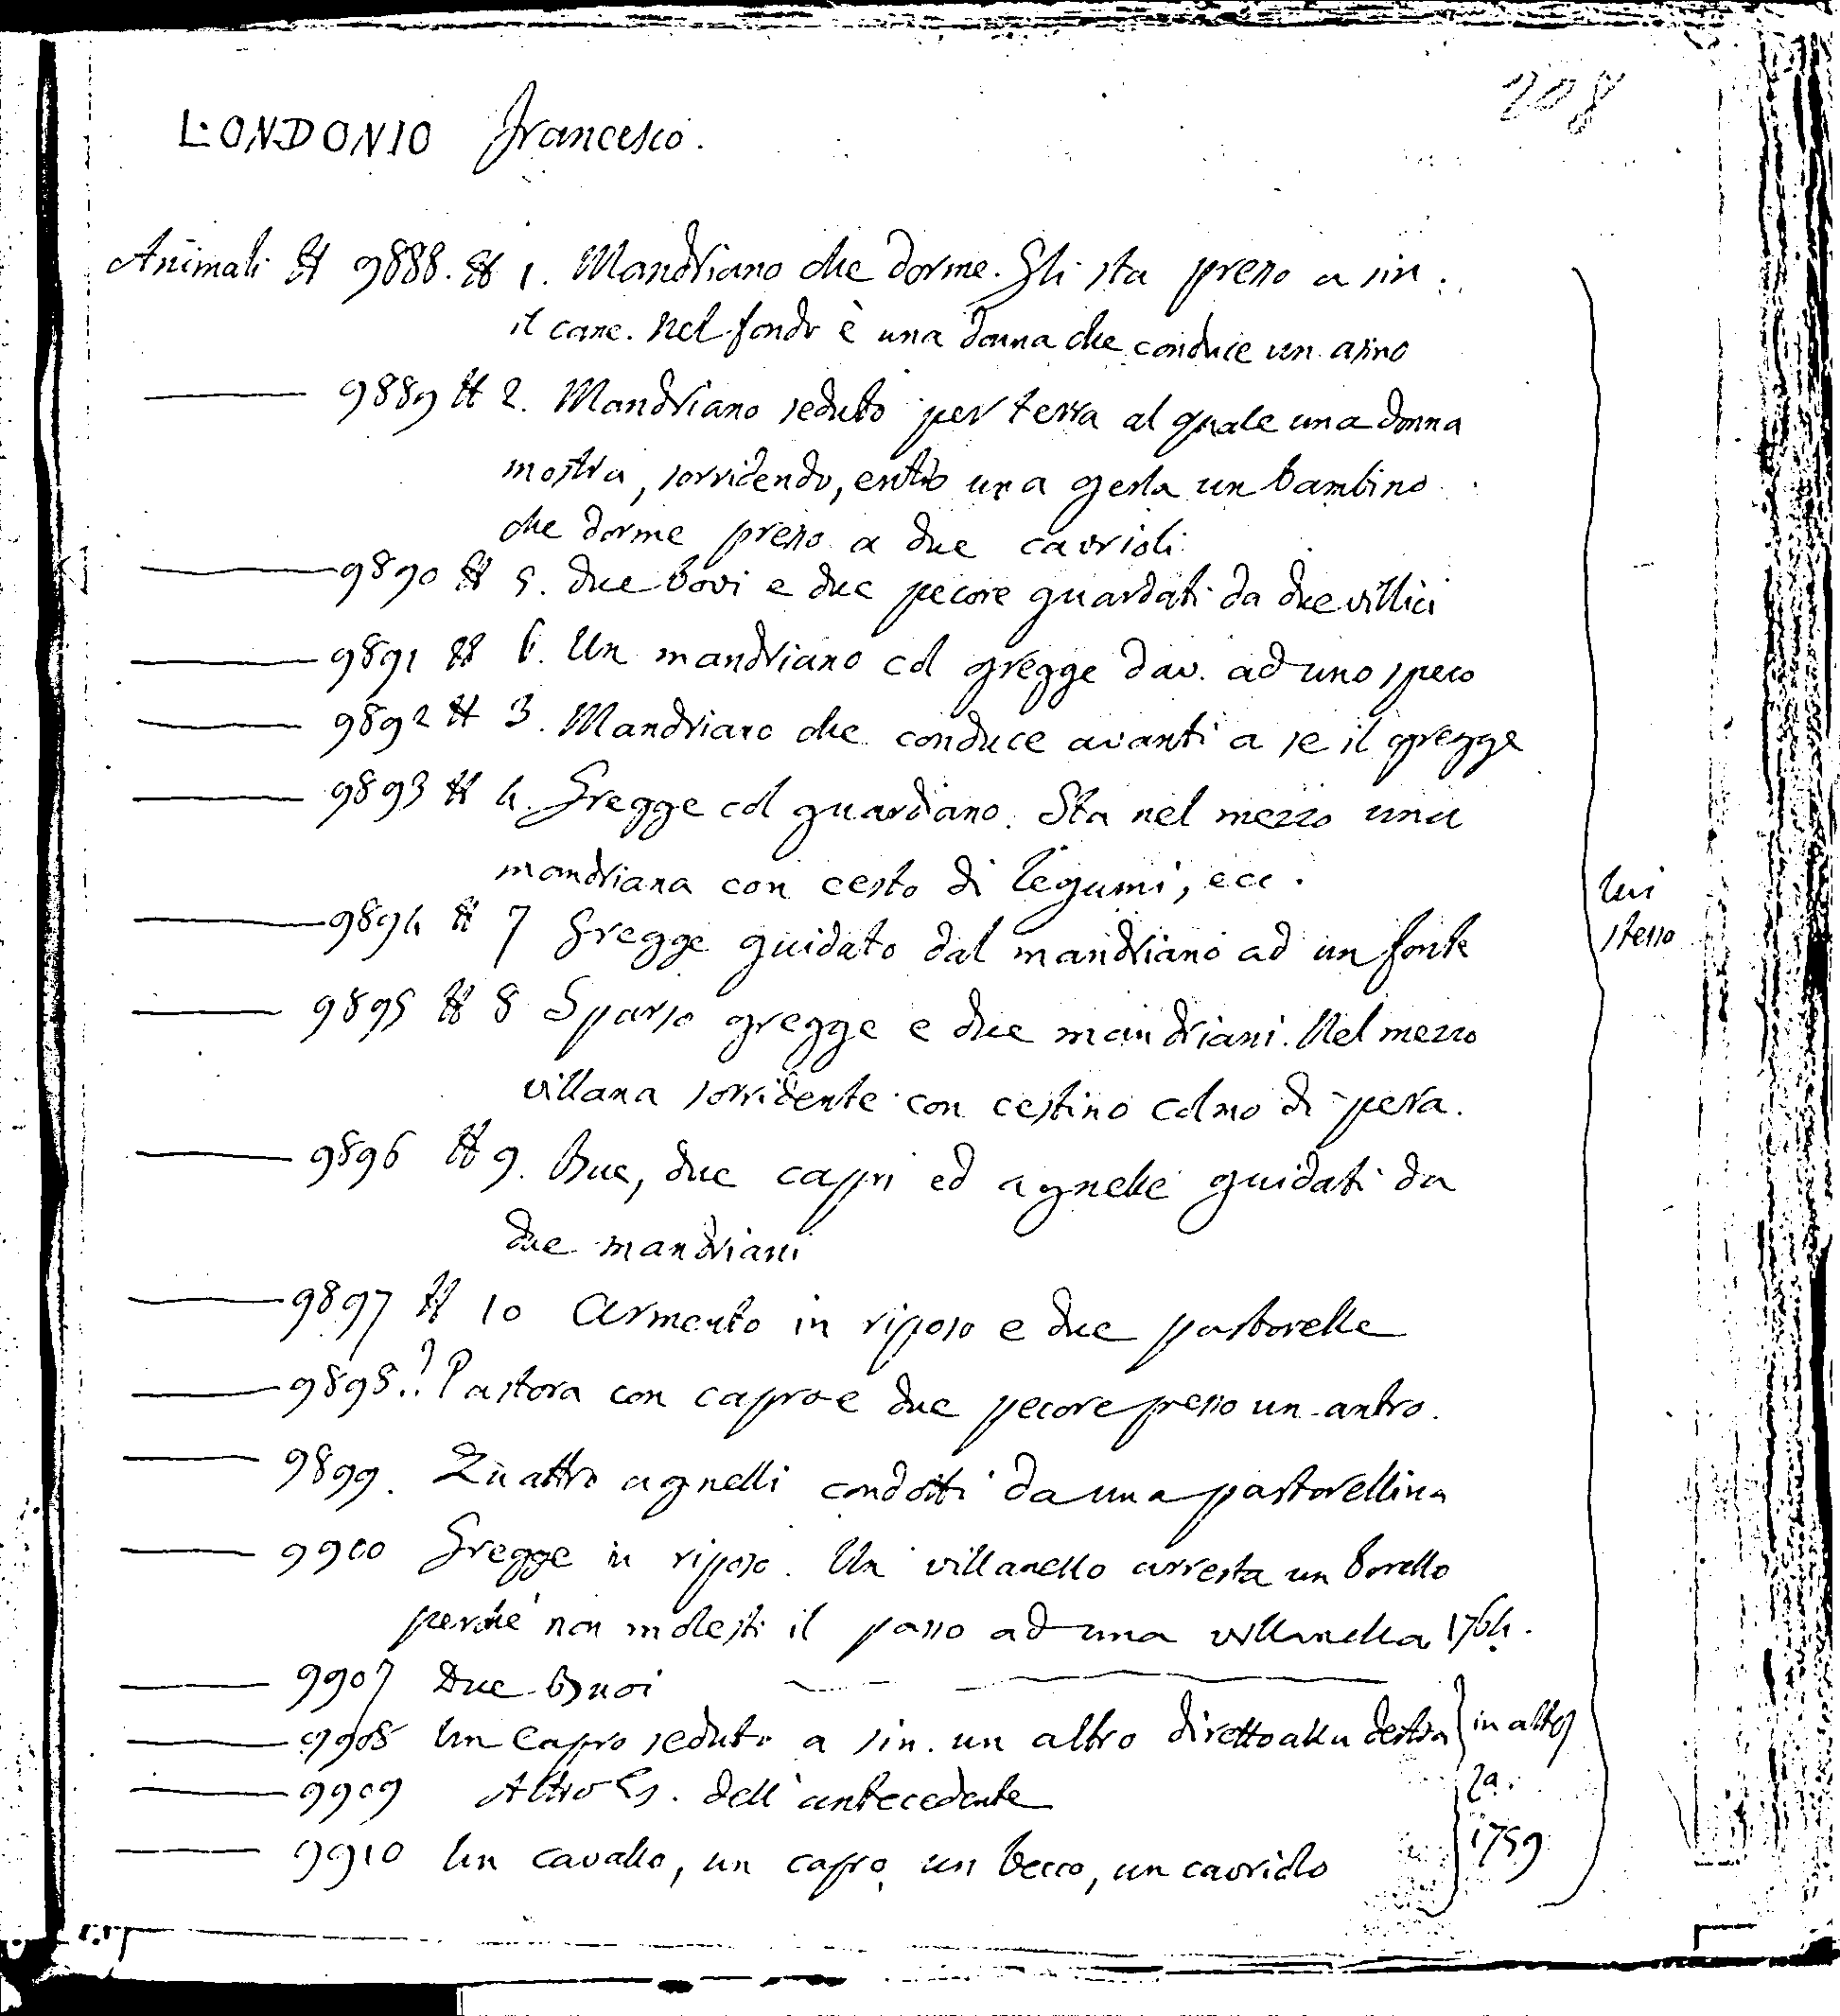 208
LONDONIO Francesco.
Animali # 9888. # 1. Mandriano che dorme. Gli sta presso a sin.
il cane. Nel fondo è una donna che conduce un asino
9889 # 2. Mandriano seduto per terra al quale una donna
mostra, sorridendo, entro una gerla un bambino
che dorme presso a due cavrioli
9890 # 5. due bovi e due pecore guardati da due villici
9891 # 6. Un mandriano col gregge dav. ad uno speco
9892 # 3. Mandriano che conduce avanti a se il gregge
9893 # 4. Gregge col guardiano. Sta nel mezzo una
mandriana con cesto di legumi, ecc.
9894 # 7 Gregge guidato dal mandriano ad un fonte
9895 # 8 Sparso gregge e due mandriani. Nel mezzo
villana sorridente con cestino colmo di pera.
9896 # 9. Bue, due capri ed agnelle guidati da
due mandriani
9897 # 10 Armento in riposo e due pastorelle
9898.? Pastora con capro e due pecore presso un antro.
9899. Quattro agnelli condotti da una pastorellina
9900 Gregge in riposo. Un villanello arresta un borello
perchè non molesti il passo ad una villanella 1764.
9907 Due Buoi
9908 Un Capro seduto a sin. un altro diretto alla destra
9909 Altro Es. dell'antecedente
9910 Un cavallo, un capro, un becco, un cavriolo
in alto
1759
lui
stesso